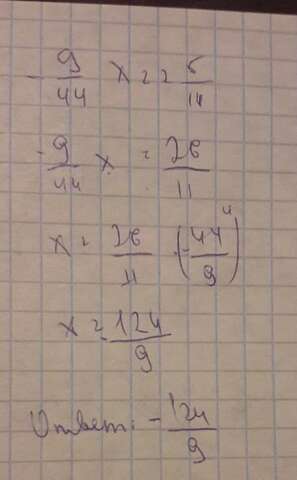 - 9/44 x = 2 5/11
- 9/44 x = 26/11
x = 26/11 (-44/9) 4
x = -124/9
Ответ: - 124/9